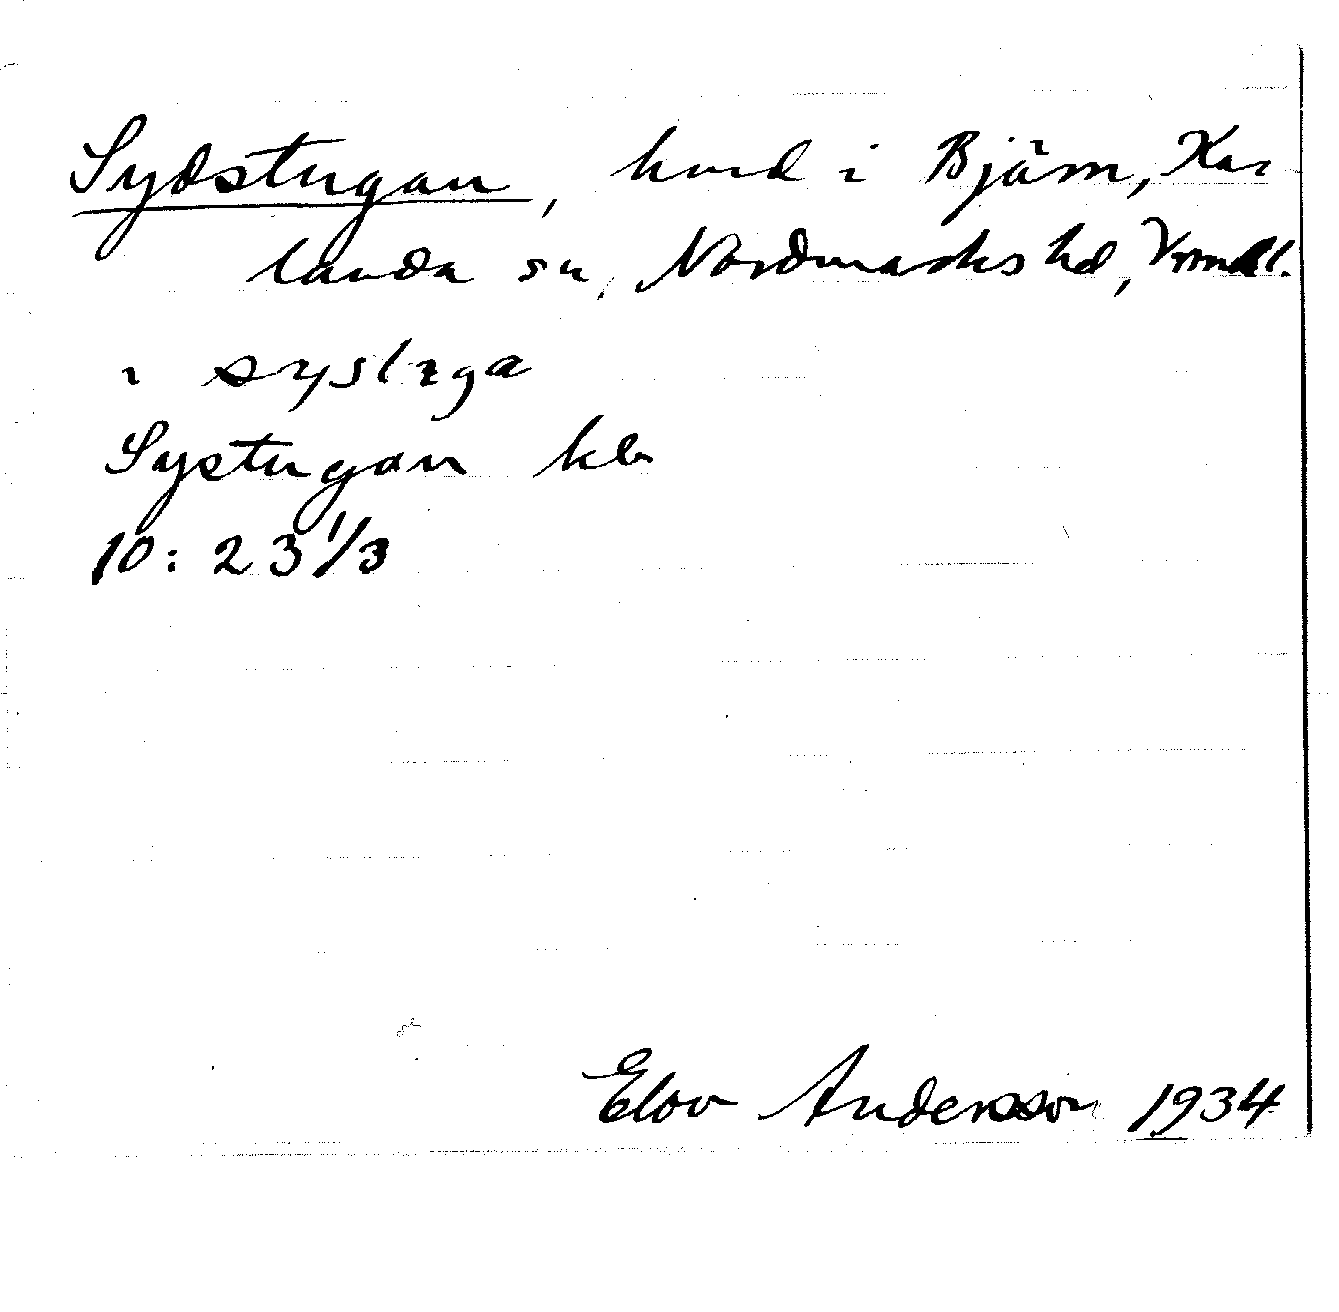 Sydstugan, hmd i Bjäm, Kar
landa sn, Nordmarks hd, Vrmdl.
i systega
Systugan kb
10: 23 1/3
Elov Andersson 1934